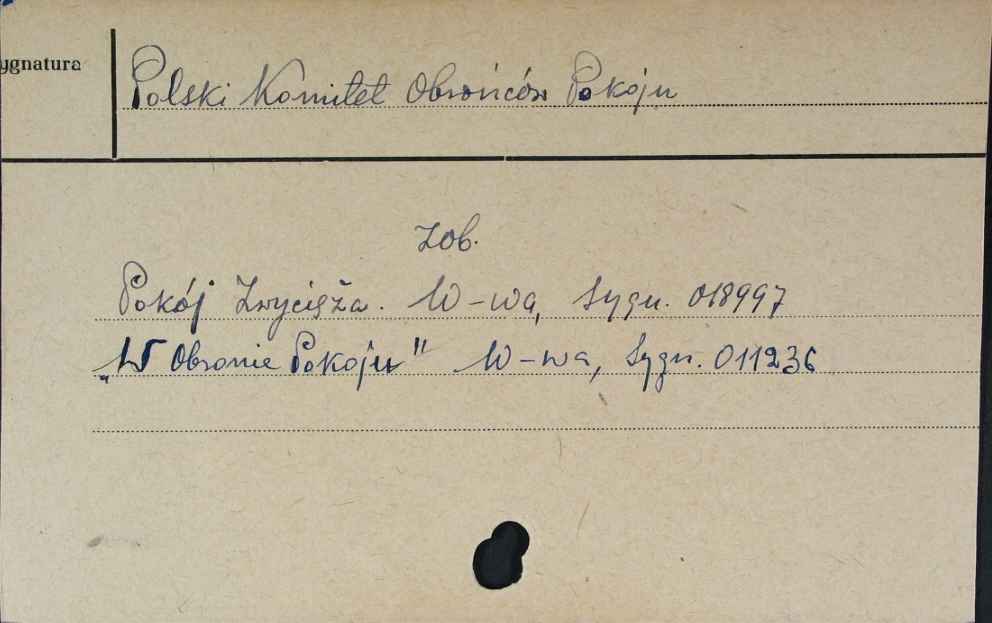 ygnatura
Polski Komitet Obrońców Pokoju
Zob.
Pokój Zwycięża. W-wa, Sygn. 018997
„W Obronie Pokoju" W-wa, Sygn. 011236